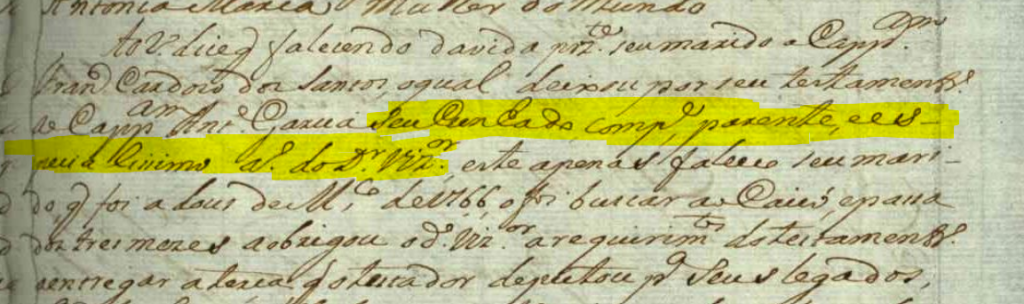 Antonia Maria Mulher do mundo
to V. dice q falecendo da vida prez.te seu marido o Capp.m
Fran.co Cardozo dos Santos o qual deixou por seu testamentr.o
ao Capp.am Ant.o Garcia seu Cunhado, comp.e parente, e es-
peciallissimo a.o do D.r Viz.or, este apenas faleceo seu mari-
do, q foi a dous de M.ço de 1766, o foi buscar ao Caicó, e para
dos tres mezes a obrigou o d.o Viz.or a requirim.to do testamentr.o
a entregar a terça q o testador deputou p.a seus legados,